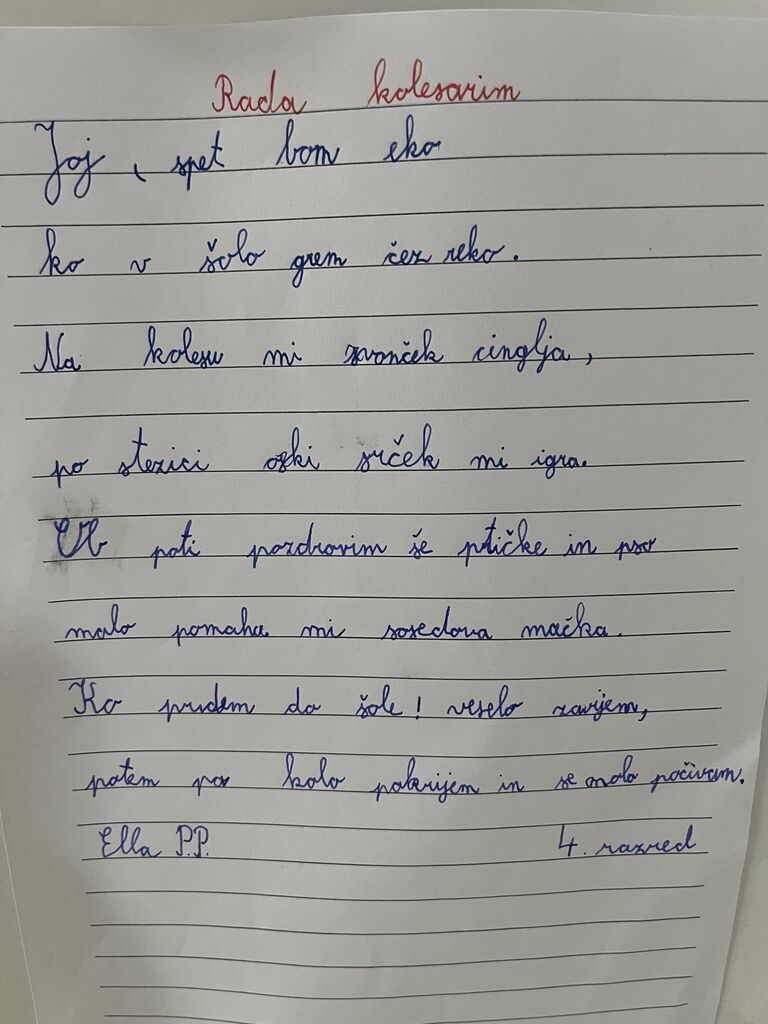 Rada kolesarim
Joj, spet bom eko
ko v šolo grem čez reko.
Na kolesu mi zvonček cinglja,
po stezici ozki srček mi igra.
Ob poti pozdravim še ptičke in psa
malo pomaha mi sosedova mačka.
Ko pridem do šole! veselo zavijem,
potem pa kolo pokrijem in se malo počivam.
Ella P.P. 4. razred